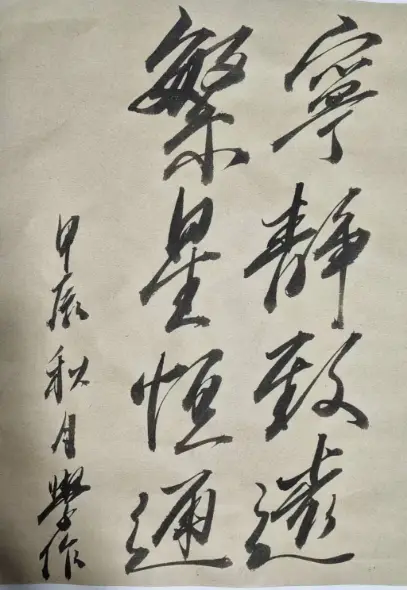 寧靜致遠
繁星恒通
甲辰秋月學作